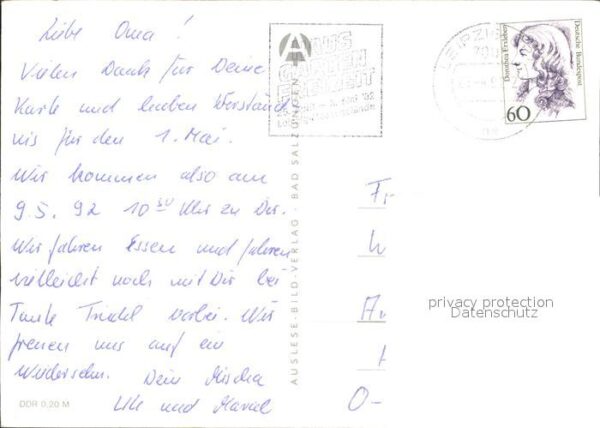 Liebe Oma!
Vielen Dank für Deine
Karte und lieben Verständ
nis für den 1. Mai.
Wir kommen also am
9.5.92 10³⁰ Uhr zu Dir.
Wir fahren Essen und fahren
vielleicht noch mit Dir bei
Tante Trudel vorbei. Wir
freuen uns auf ein
Wiedersehn. Dein Mischa
und
DDR 0,20 M
AUSLESE-BILD-VERLAG · BAD SALZUNGEN
A AUS
LEIPZIG
Dorothea Erxleben
Deutsche Bundespost
60
O-
privacy protection
Datenschutz